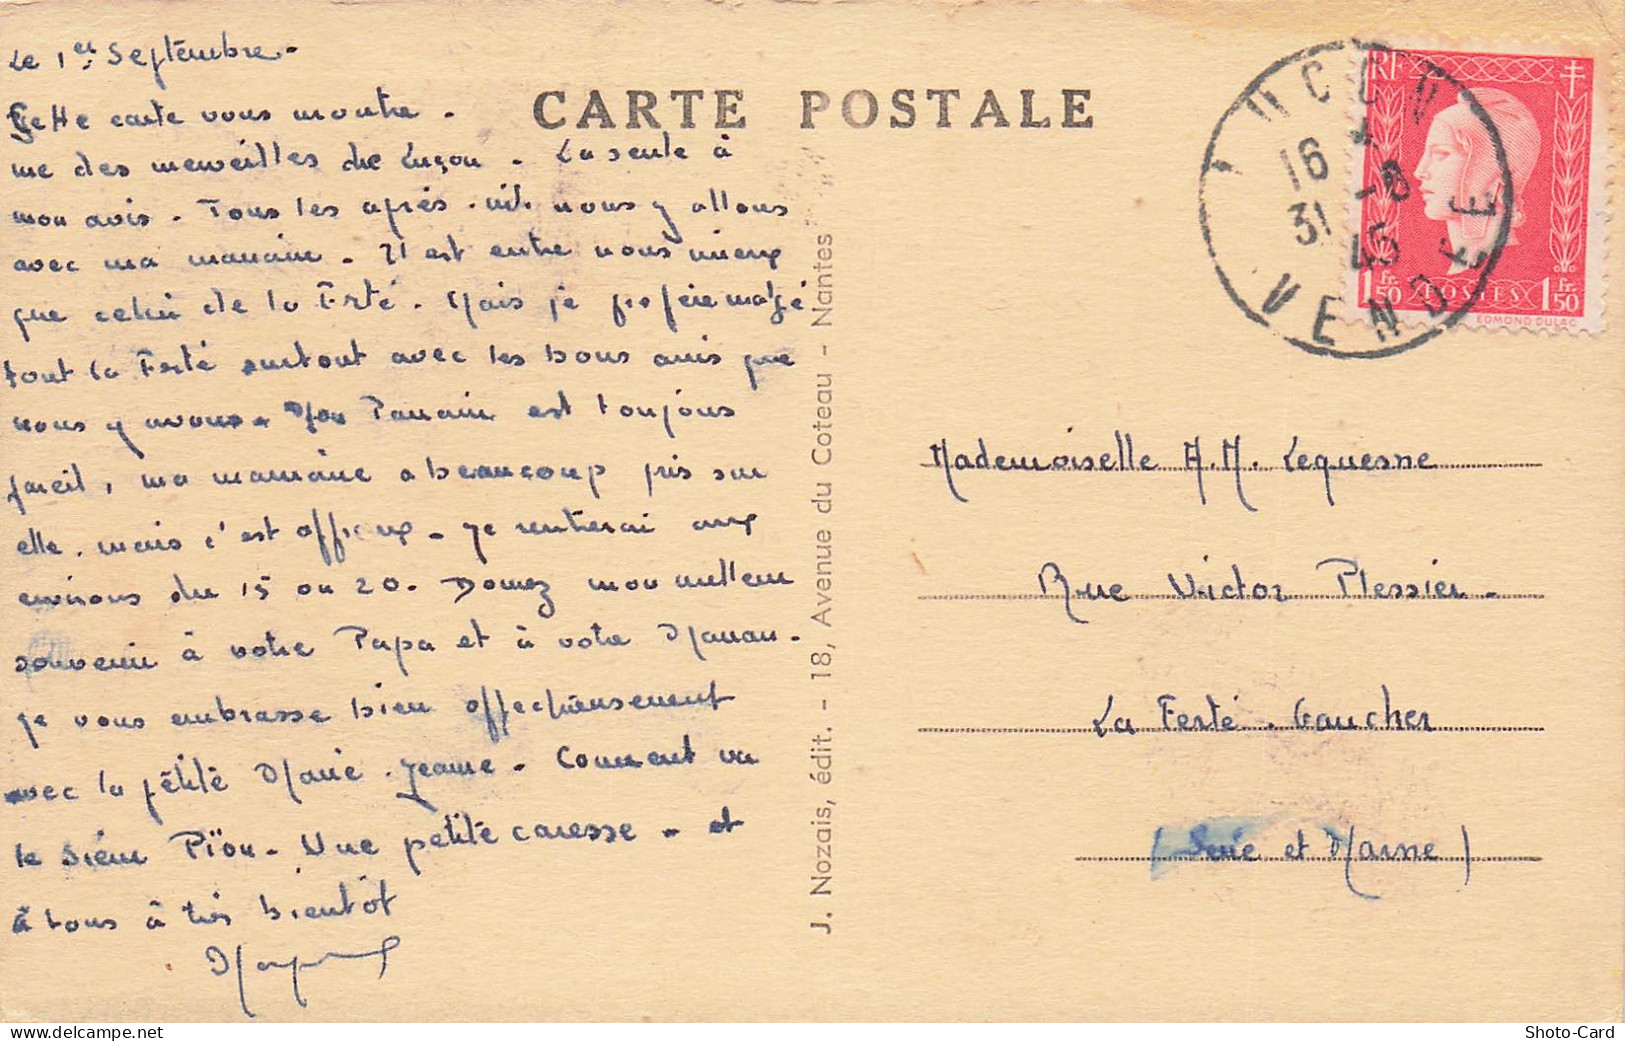 Le 1er Septembre -
Cette carte vous montre .
me des merveilles de Luçon . La seule à
mon avis . Tous les après . nous y allons
avec ma marraine . Il est entre nous mieux
que celui de la Ferté . Mais je préfère malgé
tout la Ferté surtout avec les bons amis que
nous y avons . Mon Parrain est toujours
pareil , ma marraine a beaucoup pris sur
elle , mais c'est affreux . Je rentrerai aux
environs du 15 ou 20 . Donnez mon meilleur
souvenir à votre Papa et à votre Maman .
Je vous embrasse bien affectueusement
avec la pétite Marie . Jeanne . Comment va
le sieur Pïou . Une petite caresse . et
à tous à très bientôt
CARTE POSTALE
J. Nozais, édit. - 18, Avenue du Coteau - Nantes
LUCON
16 H
31 -8
45
VENDEE
RF
1 Fr. 50 POSTES 1 Fr. 50
EDMOND DULAC
Mademoiselle A.M. Lequesne
Rue Victor Plessier .
La Ferté . Gaucher
( Seine et Marne )
Shoto-Card